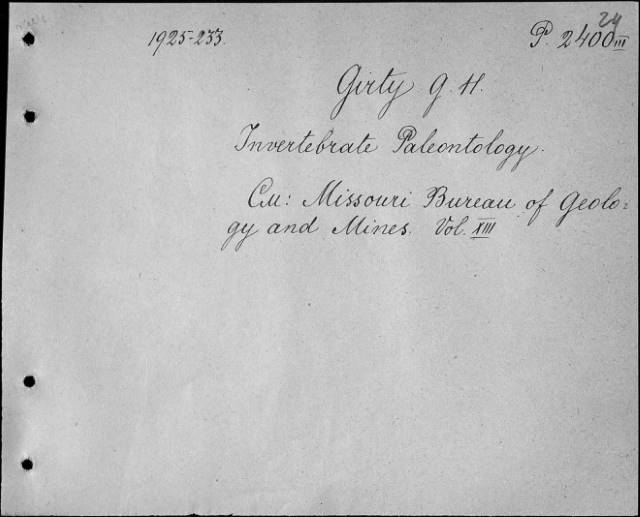 24
1925-233. P. 2400 III
Girty G. H.
Invertebrate Paleontology.
См: Missouri Bureau of Geolo-
gy and Mines. Vol. XIII